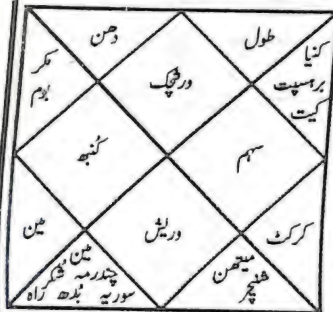 دھن
طول
مکر
بوم
ورشچک
کنیا
برہسپت
کیت
کنبھ
سہم
مین
ورش
کرکٹ
مین
چندرمہ شکر
سوریہ بدھ راہ
میتھن
شنچر